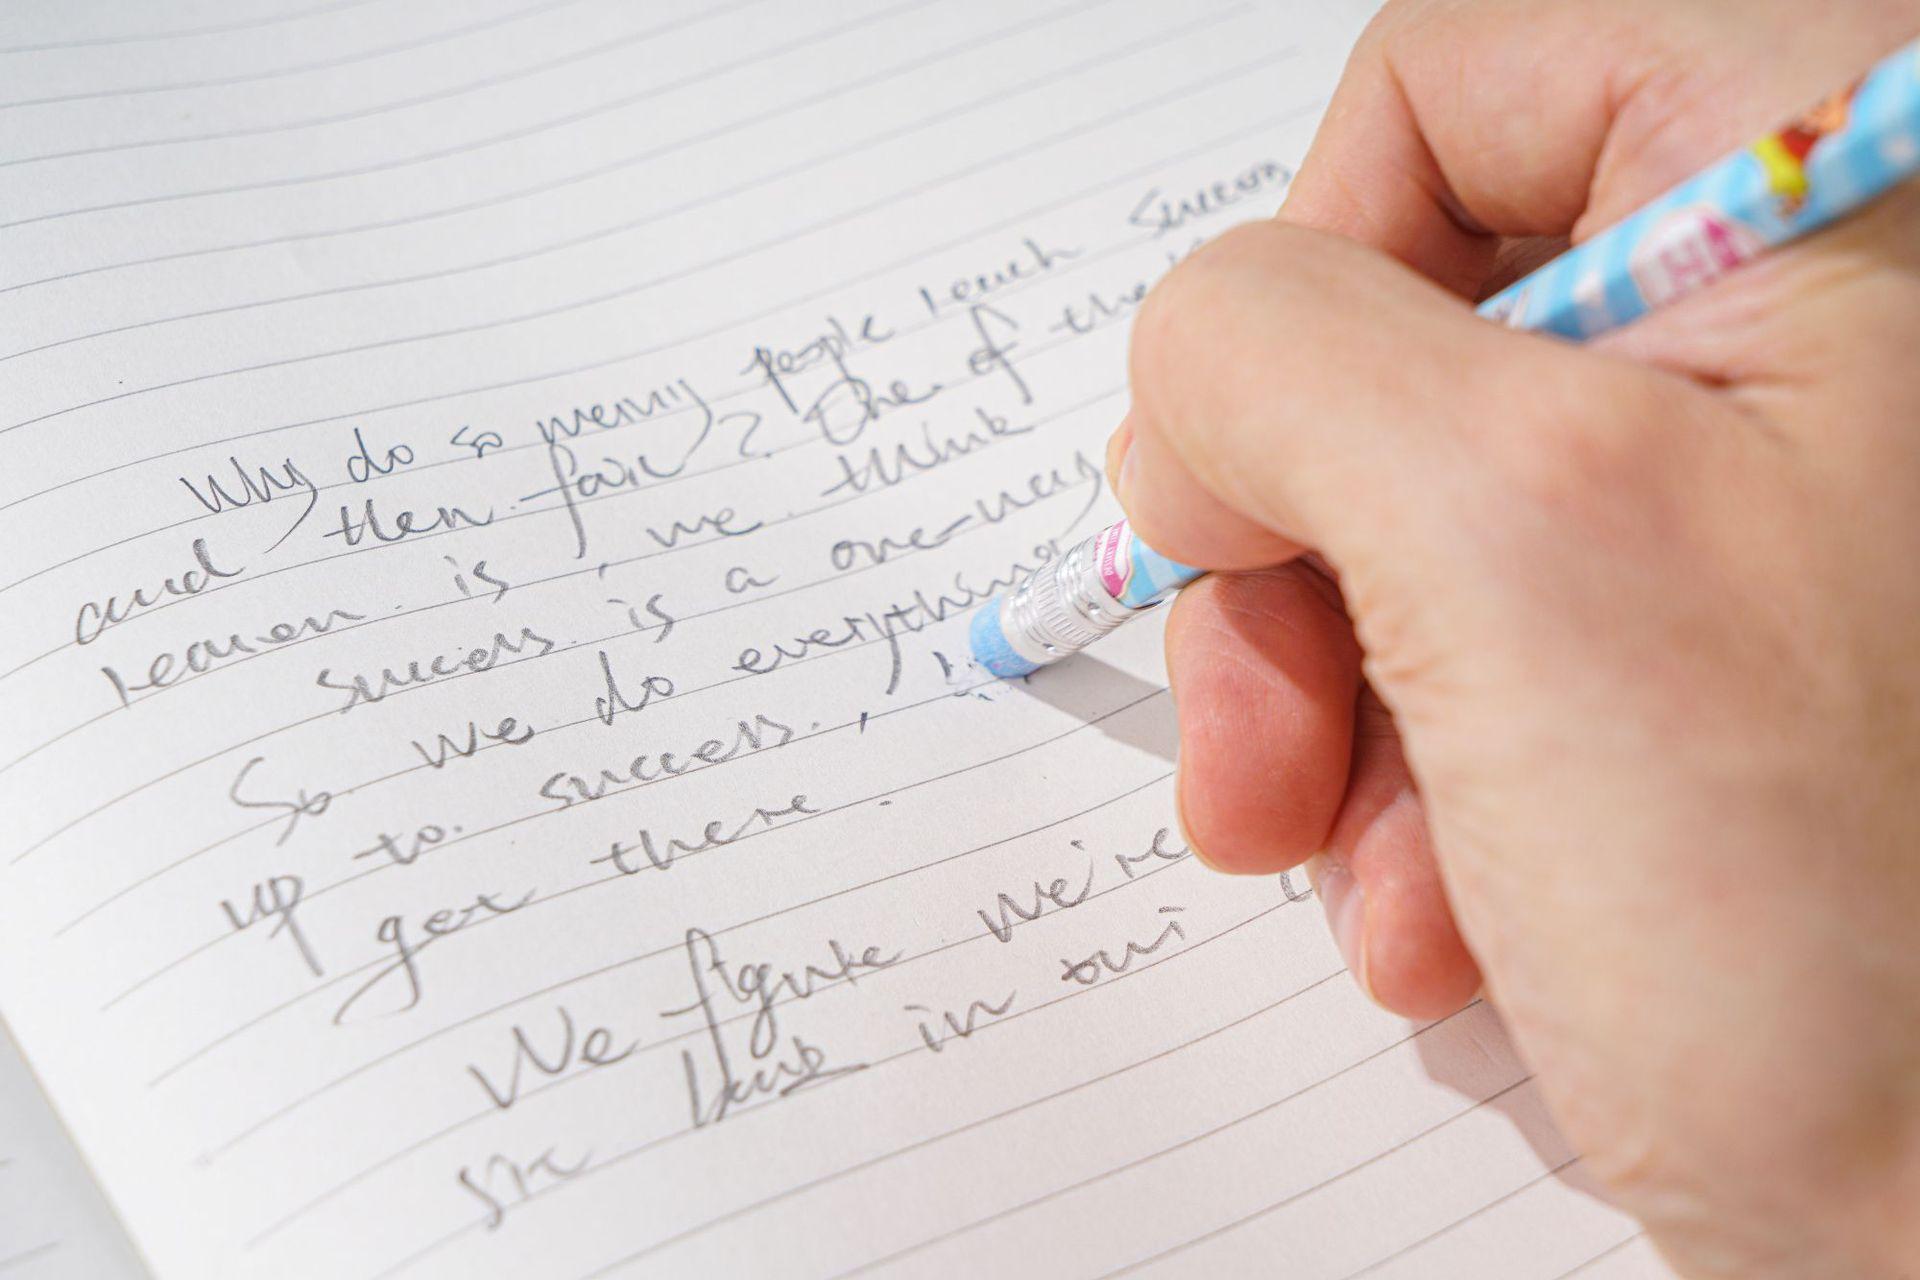 Why do so many people reach success
and then fail? One of the
reason is, we think
success is a one-way
So we do everything
up to success,
get there.
We figure we're
sit back in our